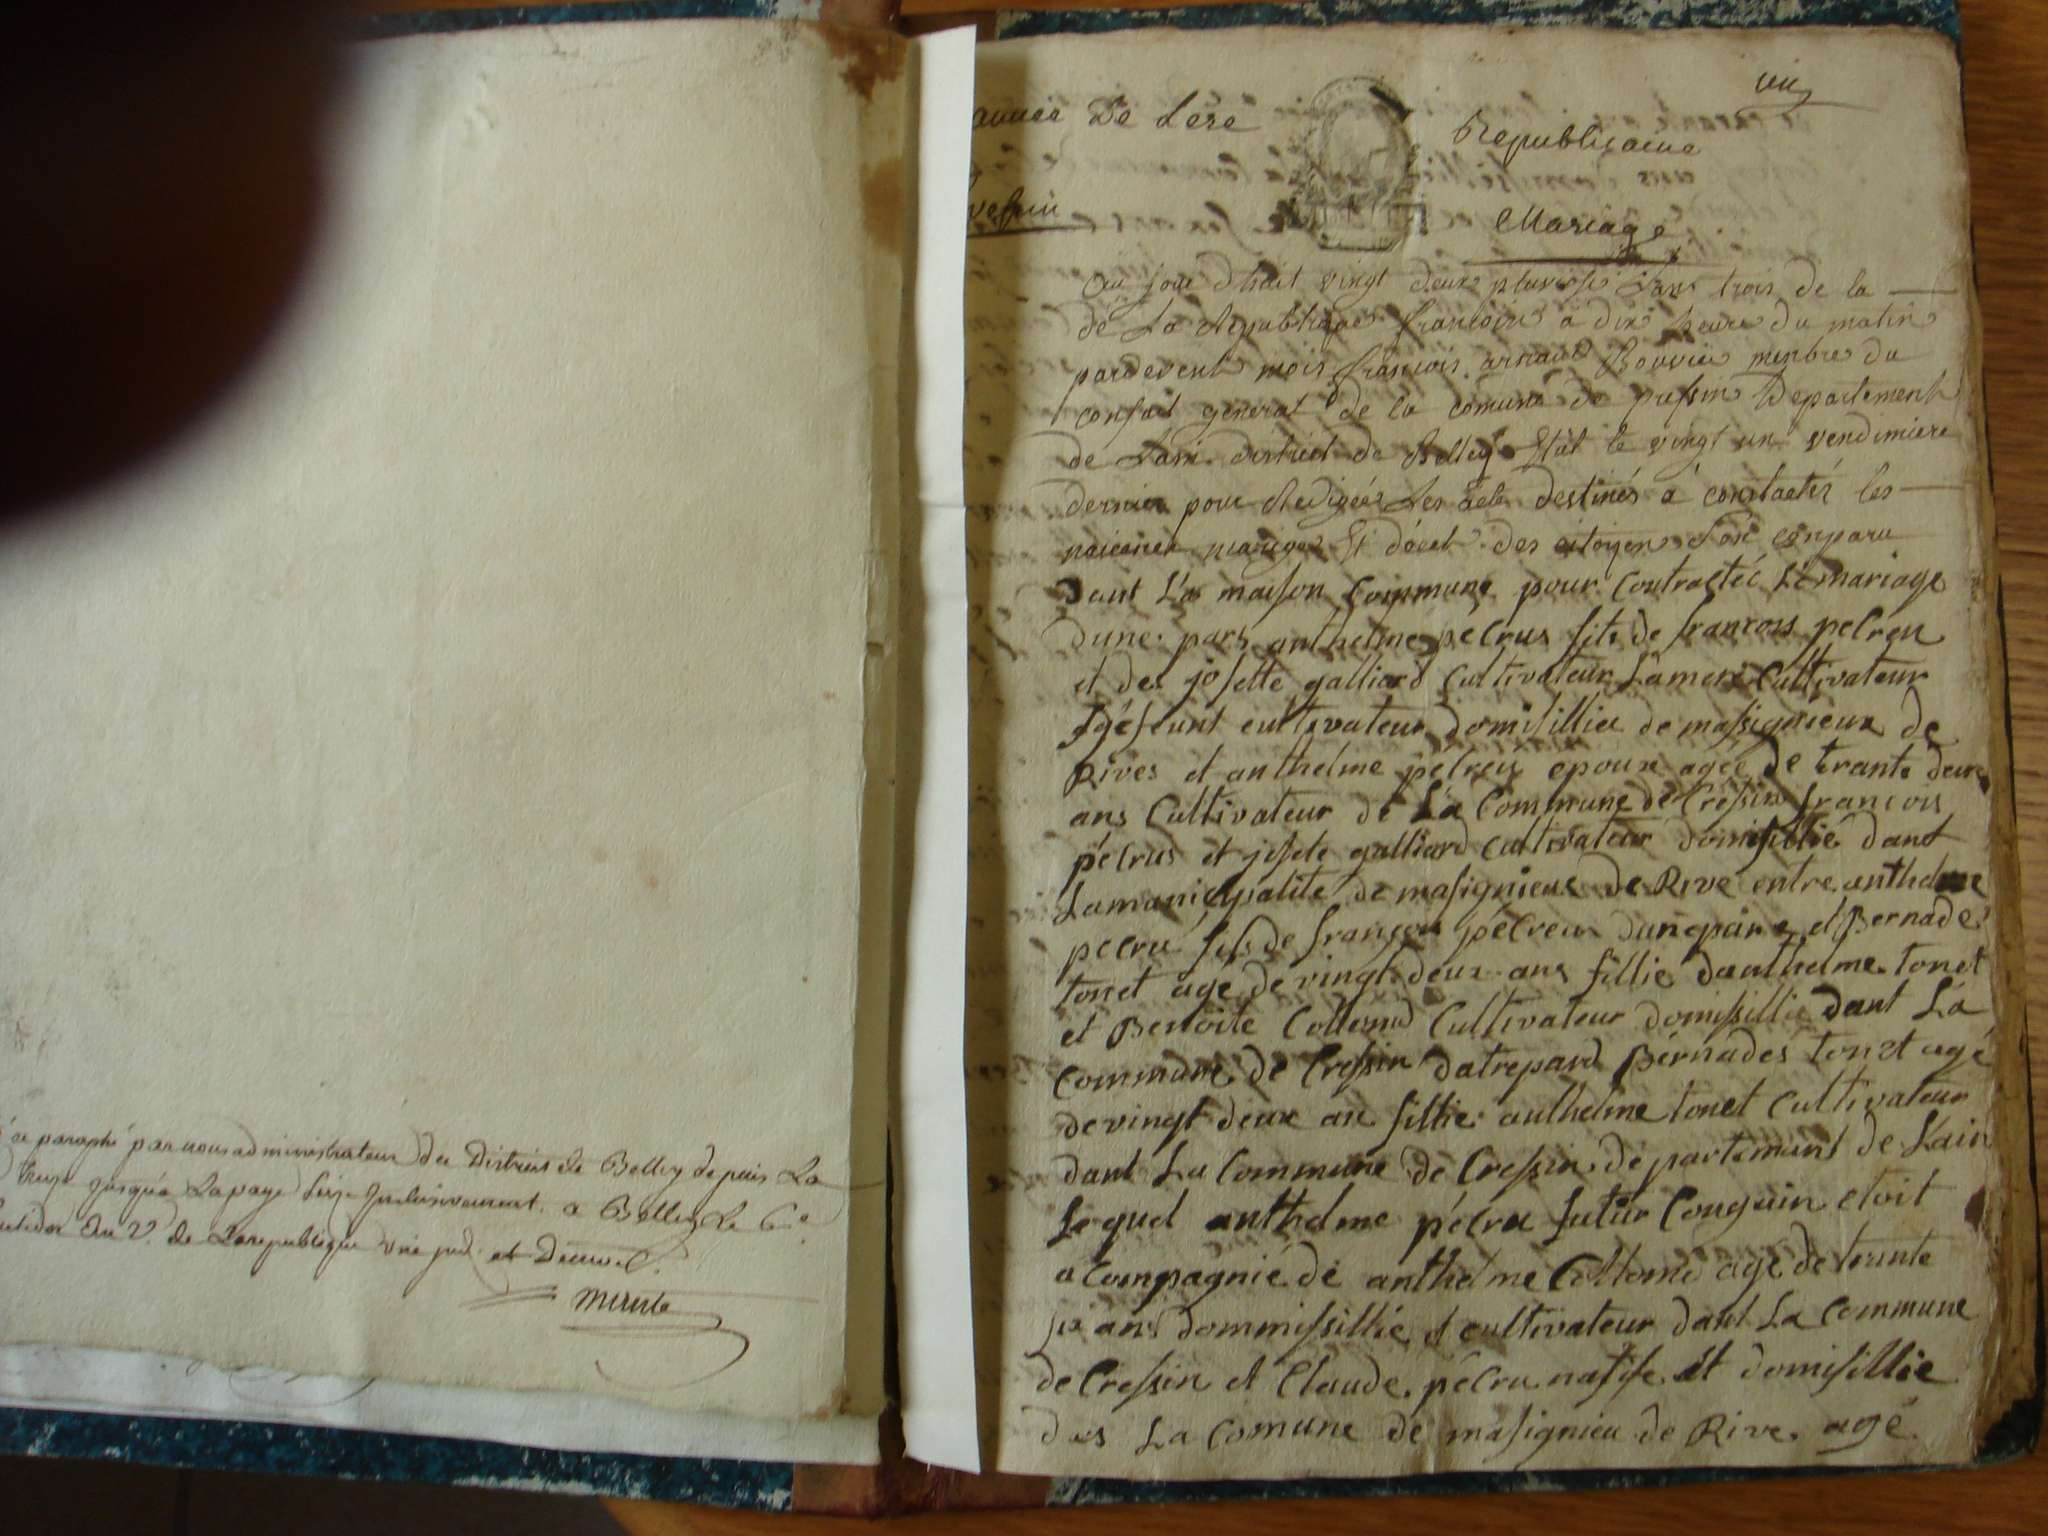 paraphé par nous administrateur du District de Belley depuis La
jusqua Lapage Seize Inclusivement a Belley Le 6e
An V. de Larepublique une ind. et Democ.
année De Lére
Republicaine
Mariage
Au jour dhuit vingt deux pluviose Lans trois de la
de La Republique francoise a dix heure du matin
pardevent mois francois arnaud Bouvier menbre du
consail general de la comune de Departement
de Lain district de Belley Elut le vingt un vendimiere
dernier pour Redigées Les acte destinés a constactés les
naicences mariges Et décet des citoyens Son conparu
Dant La maison Commune pour Contractéé Le mariage
dune part anthelme pelrus fits de francois pelreu
et de josette galliard Cultivateur Lamere Cultivateur
cultivateur domisillieu de massignieux de
Rives et anthelme pelreu epoux agée De trante deux
ans Cultivateur de La Commune de Cressin francois
pélrus et josete galliard cultivateur Domisillié dant
Lamanicipalité de masignieux de Rive entre anthelme
pelru fils de françois pélreu dunepair et Bernade
tonet agé de vingt deux ans fillie danthelme tonet
et Benoite Collomd Cultivateur domissillie dant La
Commune de Cressin datrepard Bérnades tonet agé
de vingt deux an fillie anthelme tonet Cultivateur
dant La Commune de Cressin departemant de Lain
Lequel anthelme pélru futur Congoin etoit
a Compagnié de anthelme Collomd agé de trante
six ans dommissillié et cultivateur dant La Commune
de Cressin et Claude pélru natife et domisillie
des La Comune de masignieu de Rive agé